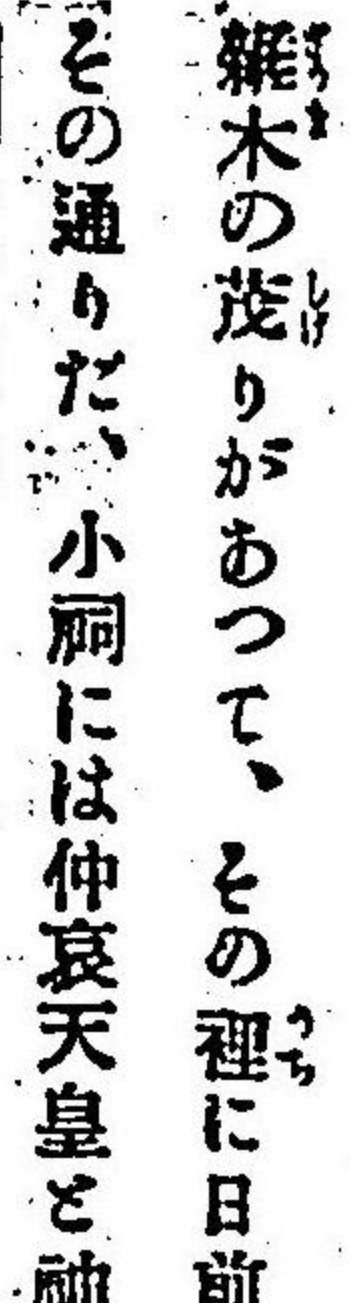 雑木の茂りがあつて、その裡に日前
その通りだ、小祠には仲哀天皇と神